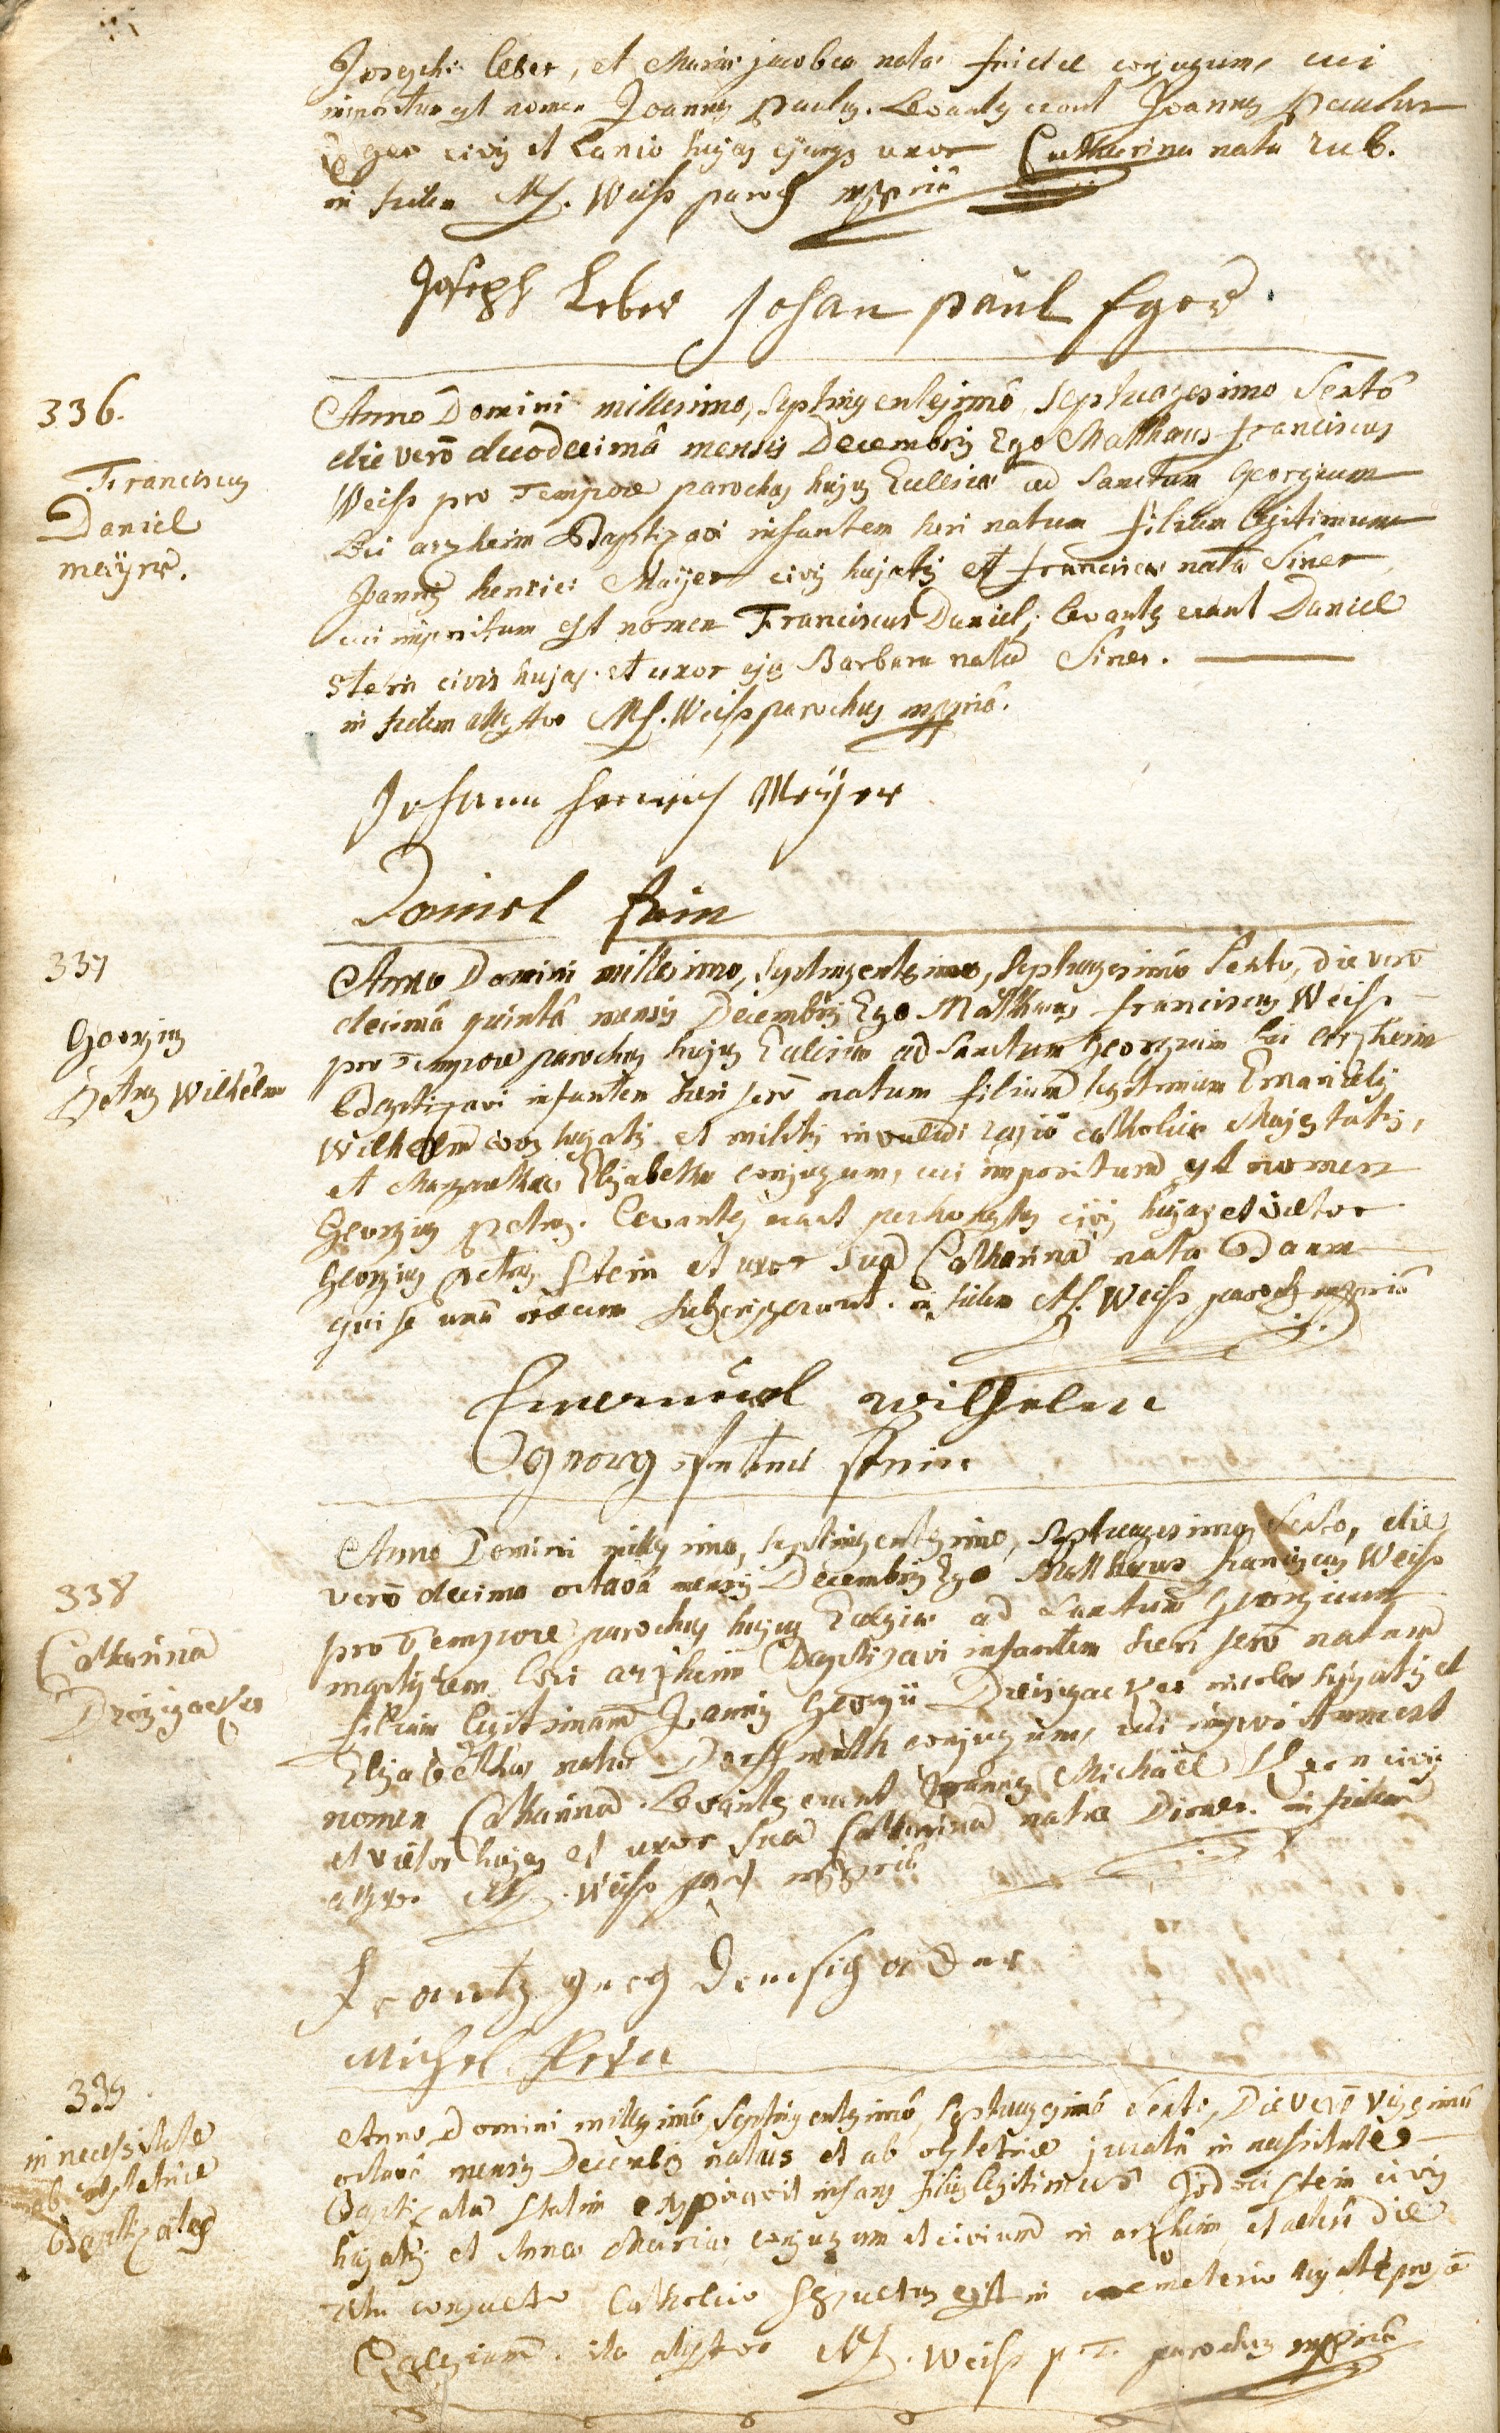 Josephi Leber, et Mariae jacobea nata fridel conjugum, cui
impositum est nomen Joannes paulus. Levantes erant Joannes Paulus
Eger civis et Lanio hujas ejusque uxor Catharina nata Rub.
in fidem Mf. Weiss parochus mppriâ
Joseph Leber Johan paul Eger
336.
Franciscus
Daniel
meÿer.
Anno Domini millesimo, septingentesimô septuagesimo sextô
die verô duodecimâ mensis Decembris Ego Matthaeus franciscus
Weiss pro Tempore parochus hujus Ecclesiae ad Sanctum Georgium
loci arzheim Baptizavi infantem heri natum filium legitimum
Joannis henrici Maÿer civis hujatis et franciscae nata Siner
cui impositum est nomen Franciscus Daniel; levantes erant Daniel
stein civis hujas et uxor ejus Barbara nata Siner.
in fidem attestor Mf. Weiss parochus mppriâ.
Johann henrich Meÿer
Daniel stein
337
Georgius
Petrus Wilhelm
Anno Domini millesimo, septingentesimo, septuagesimô sexto, die verô
decimâ quintâ mensis Decembris Ego Matthaeus franciscus Weiss
pro Tempore parochus hujus Ecclesiae ad Sanctum Georgium loci arzheim
Baptizavi infantem heri serô natum filium legitimum Emanuelis
Wilhelm civis hujatis et militis invalidi regiae catholicae Majestatis,
et Margarethae Elisabetha conjugum, cui impositum est nomen
Georgius petrus. Levantes erant perhonestus civis hujas et vietor
Georgius petrus Stein et uxor sua Catharina nata Daum
qui se unâ mecum subscripserunt. in fidem Mf. Weiss parochus mppriâ
Emanuel wilhelm
georg peter stein
338
Catharina
Dreisigacker
Anno Domini millesimo, septingentesimo, septuagesimo sexto, die
verô decima octavâ mensis Decembris Ego Matthaeus franciscus Weiss
pro Tempore parochus hujus Ecclesiae ad Sanctum Georgium
martyrem loci arzheim Baptizavi infantem heri serô natam
filiam legitimam Joannis Georgii Dreisigacker incolae hujatis et
Elisabethae natae Dorffmuth conjugum, cui impositum est
nomen Catharina. Levantes erant Joannes Michaël Kern civis
et vietor hujas et uxor sua Catharina nata Diener. in fidem
attestor Mf. Weiss parochus mppriâ
Frantz georg
Michel Kern
339.
in necessitate
ab obstetrice
Baptizatus
Anno Domini millesimô, septingentesimô, septuagesimô sexto, Die verô vigesimâ
octavâ mensis Decembris natus et ab obstetrice juratâ in necessitate
Baptizatus statim expiravit infans filius legitimus Jodoci stein civis
hujatis et Anna Maria conjugum et civium in arzheim, et altera die
ritu consueto Catholico sepultus est in coemeterio hujate prope
Ecclesiam. ita attestor Mf. Weiss p. T. parochus mppriâ